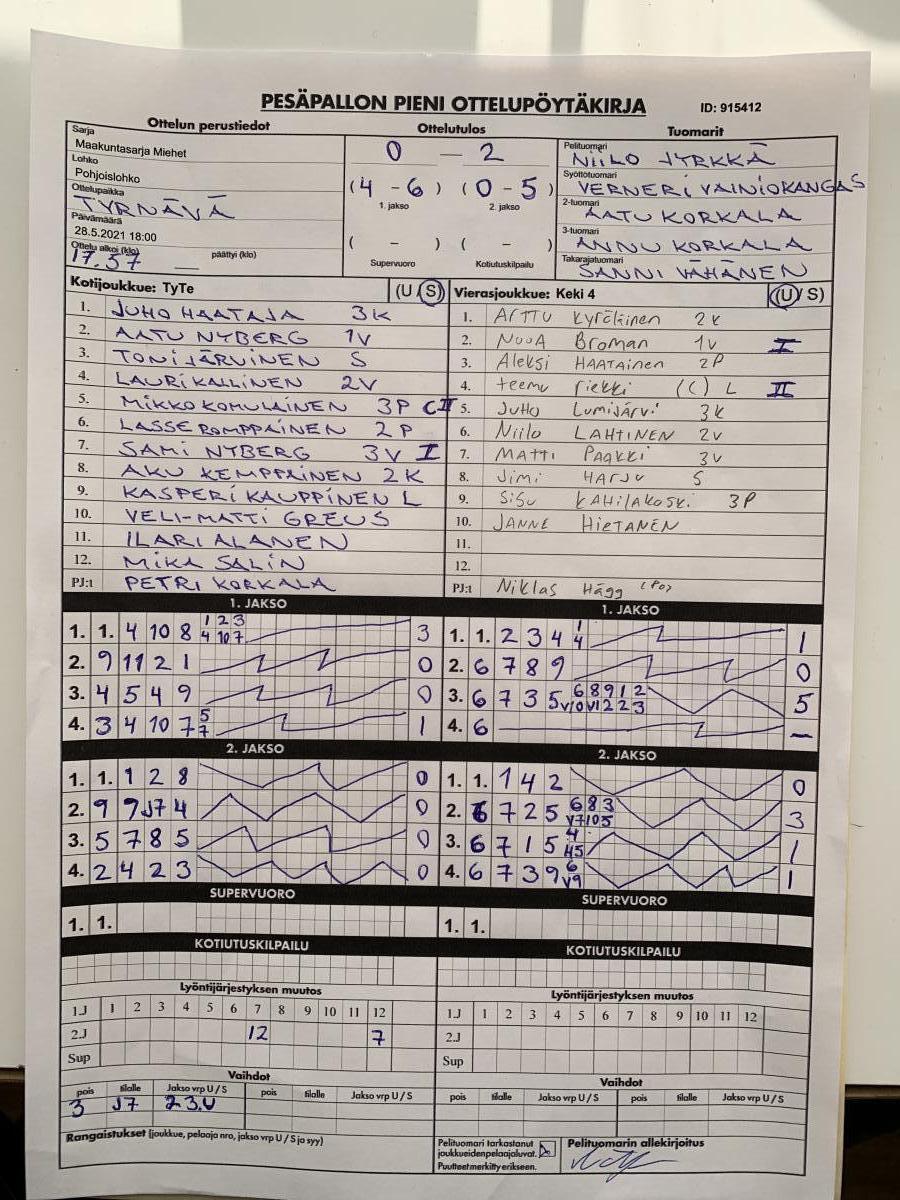 PESÄPALLON PIENI OTTELUPÖYTÄKIRJA
ID: 915412
Ottelun perustiedot
Sarja
Maakuntasarja Miehet
Lohko
Pohjoislohko
Ottelupaikka
TYRNÄVÄ
Päivämäärä
28.5.2021 18:00
Ottelu alkoi (klo) päättyi (klo)
17.57
Ottelutulos
0 — 2
(4 - 6) (0 - 5)
1. jakso 2. jakso
( - ) ( - )
Supervuoro Kotiutuskilpailu
Tuomarit
Pelituomari
NIILO JYRKKÄ
Syöttötuomari
VERNERI VAINIOKANGAS
2-tuomari
AATU KORKALA
3-tuomari
ANNU KORKALA
Takarajatuomari
SANNI VÄHÄNEN
Kotijoukkue: TyTe (U / S)
1. JUHO HAATAJA 3K
2. AATU NYBERG 1V
3. TONI JÄRVINEN S
4. LAURI KALLINEN 2V
5. MIKKO KOMULAINEN 3P C II
6. LASSE ROMPPAINEN 2P
7. SAMI NYBERG 3V I
8. AKU KEMPPAINEN 2K
9. KASPERI KAUPPINEN L
10. VELI-MATTI GREUS
11. ILARI ALANEN
12. MIKA SALIN
PJ:t PETRI KORKALA
Vierasjoukkue: Keki 4 (U / S)
1. ARTTU Kyröläinen 2K
2. NUUA Broman 1V I
3. Aleksi HAATAINEN 2P
4. teemu riekki (C) L II
5. JUHO Lumijärvi 3K
6. Niilo LAHTINEN 2V
7. MATTI PAAKKI 3V
8. Jimi HARJU S
9. SISU KAHILAKOSKI 3P
10. JANNE HIETANEN
11.
12.
PJ:t Niklas Hägg (PO)
1. JAKSO
1. 1. 4 10 8 1 2 3 3
4 10 7
2. 9 11 2 1 0
3. 4 5 4 9 0
4. 3 4 10 7 5 1
7
2. JAKSO
1. 1. 1 2 8 0
2. 9 9 J7 4 0
3. 5 7 8 5 0
4. 2 4 2 3 0
SUPERVUORO
1. 1.
KOTIUTUSKILPAILU
1. JAKSO
1. 1. 2 3 4 1 1
4
2. 6 7 8 9 0
3. 6 7 3 5 6 8 9 1 2 5
V10 V1 2 2 3
4. 6 —
2. JAKSO
1. 1. 1 4 2 0
2. 6 7 2 5 6 8 3 3
V7 10 5
3. 6 7 1 5 4 1
45
4. 6 7 3 9 6 1
V9
SUPERVUORO
1. 1.
KOTIUTUSKILPAILU
Lyöntijärjestyksen muutos
1.J 1 2 3 4 5 6 7 8 9 10 11 12
2.J 12 7
Sup
Lyöntijärjestyksen muutos
1.J 1 2 3 4 5 6 7 8 9 10 11 12
2.J
Sup
Vaihdot
pois tilalle Jakso vrp U / S pois tilalle Jakso vrp U / S
3 J7 2 3.U
Vaihdot
pois tilalle Jakso vrp U / S pois tilalle Jakso vrp U / S
Rangaistukset (joukkue, pelaaja nro, jakso vrp U / S ja syy)
Pelituomari tarkastanut
joukkueiden pelaajaluvat.
Puutteet merkitty erikseen.
Pelituomarin allekirjoitus